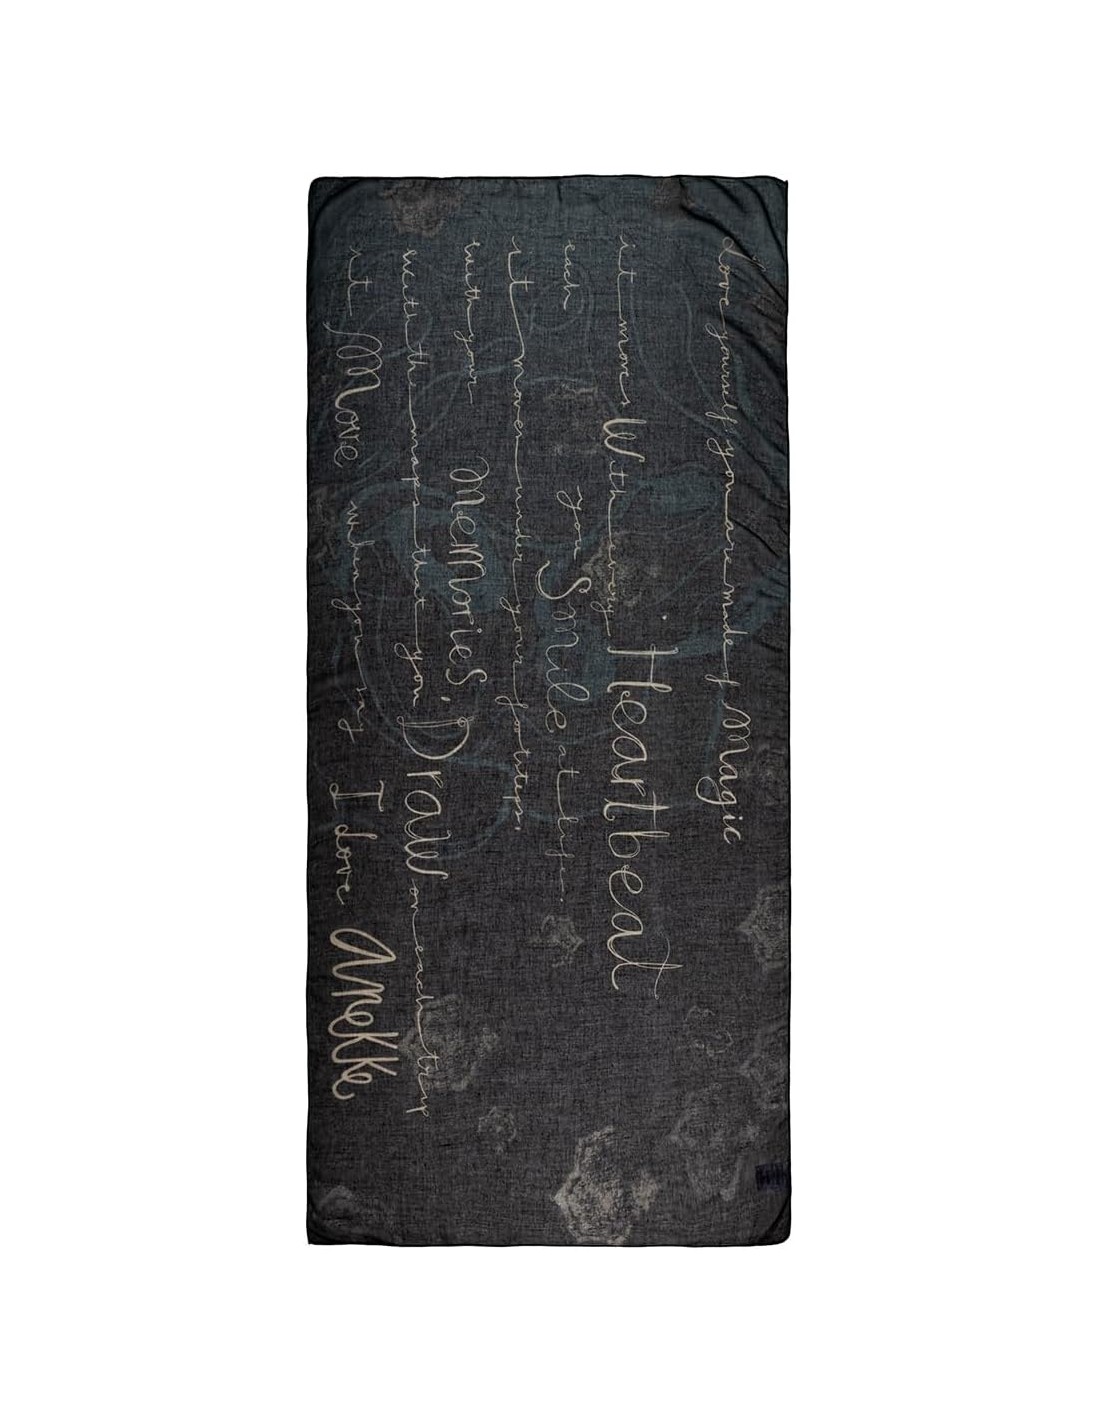 Love yourself, you are made of Magic
it moves With every Heartbeat
each you Smile at life.
it moves under your footsteps,
with your Memories,
with the maps that you Draw on each trip
it Move when you say I Love Anekke